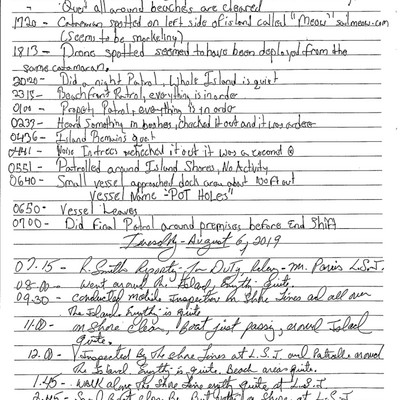 Quiet all around beaches are cleared
1720 - Catamaran spotted on left side of island called "Meow" sailmeow.com
(Seems to be snorkeling)
1813 - Drone spotted seemed to have been deployed from the
same catamaran.
2020 - Did a night Patrol, Whole Island is quiet
2315 - Beachfront Patrol, everything is in order
0100 - Property Patrol, everything is in order
0237 - Heard Something in bushes, checked it out and it was a deer
0436 - Island Remains quiet
0441 - Noise In trees rechecked it out it was a
0551 - Patrolled around Island Shores, No Activity
0640 - Small vessel approached dock area about 100ft out
Vessel Name - "POT HOLES"
0650 - Vessel Leaves
0700 - Did final Patrol around premises before End Shift
Tuesday - August 6, 2019
07.15 - R. Smith Reports for Duty, - M. Paris L.S.J.
08.00 - Went around the Island, quite.
09.30 - Conducted mobile Inspection on Shore Lines and all over
the Island. is quite
11.00 - on Shore Clean, Boat just passing around Island
quite.
12.00 - Inspected By The Shore Lines at L.S.J. and Patrolls around
the Island. is quite. Beach area quite.
1.45 - Walk along The Shore Lines quite at L.S.J.
2.45 - Small boat along Shore at L.S.J.